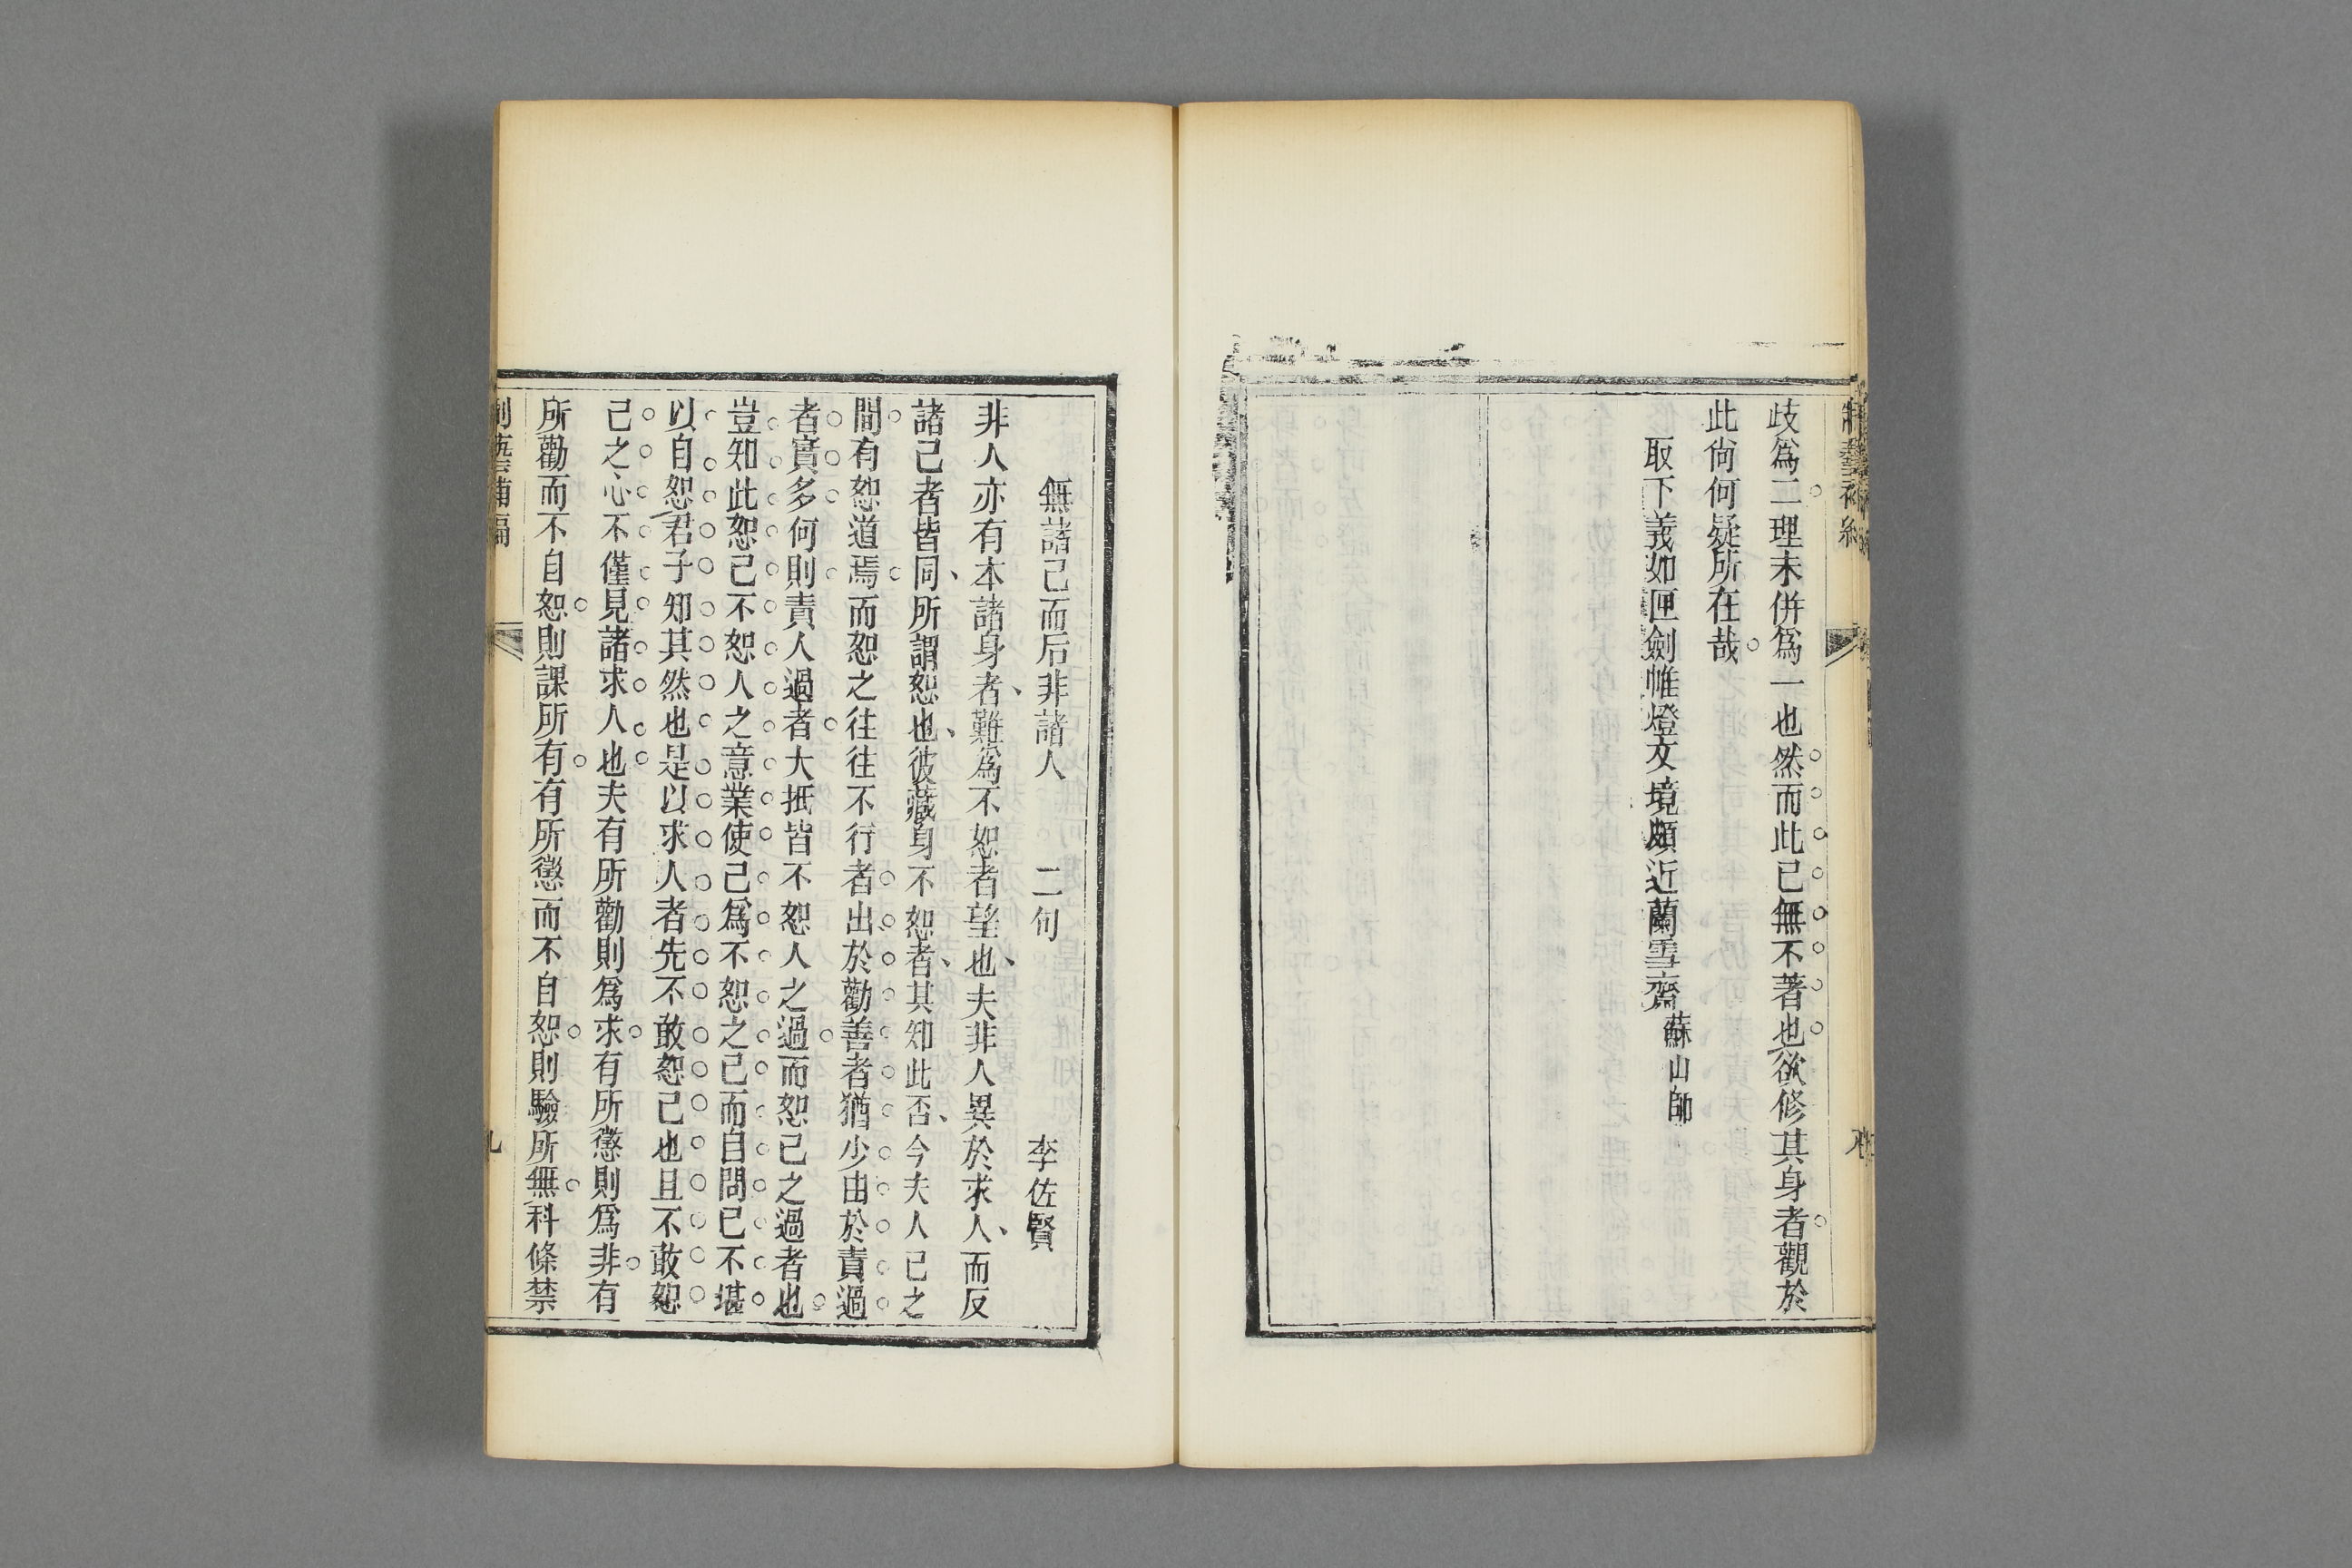 歧爲二理未併爲一也然而此已無不著也欲修其身者觀於
此尙何疑所在哉
取下義如匣劍帷燈文境頗近蘭雪齋蘇山師
無諸己而后非諸人 二句 李佐賢
非人亦有本諸身者難為不恕者望也夫非人異於求人而反
諸己者皆同所謂恕也彼藏身不恕者其知此否今夫人己之
間有恕道焉而恕之往往不行者出於勸善者猶少由於責過
者實多何則責人過者大抵皆不恕人之過而恕己之過者也
豈知此恕己不恕人之意業使己爲不恕之己而自問已不堪
以自恕君子知其然也是以求人者先不敢恕己也且不敢恕
己之心不僅見諸求人也夫有所勸則爲求有所懲則爲非有
所勸而不自恕則課所有有所懲而不自恕則驗所無科條禁